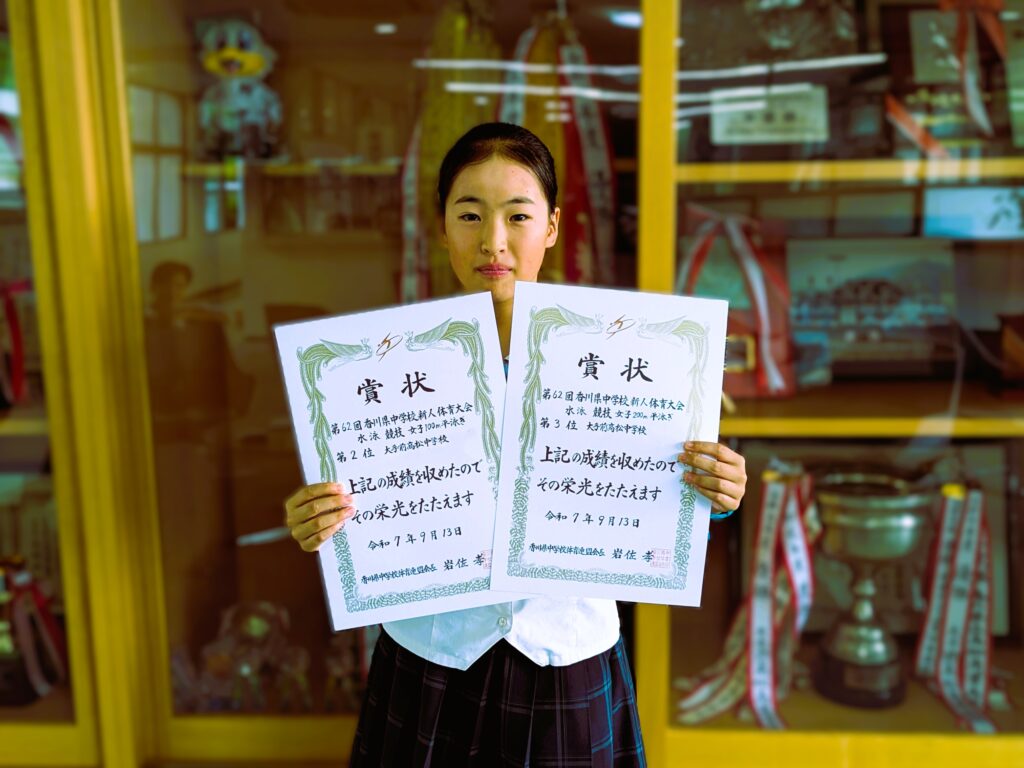 賞状
第62回香川県中学校新人体育大会
水泳競技 女子100m平泳ぎ
第2位 大手前高松中学校
上記の成績を収めたので
その栄光をたたえます
令和7年9月13日
香川県中学校体育連盟会長 岩佐 孝
賞状
第62回香川県中学校新人体育大会
水泳競技 女子200m平泳ぎ
第3位 大手前高松中学校
上記の成績を収めたので
その栄光をたたえます
令和7年9月13日
香川県中学校体育連盟会長 岩佐 孝